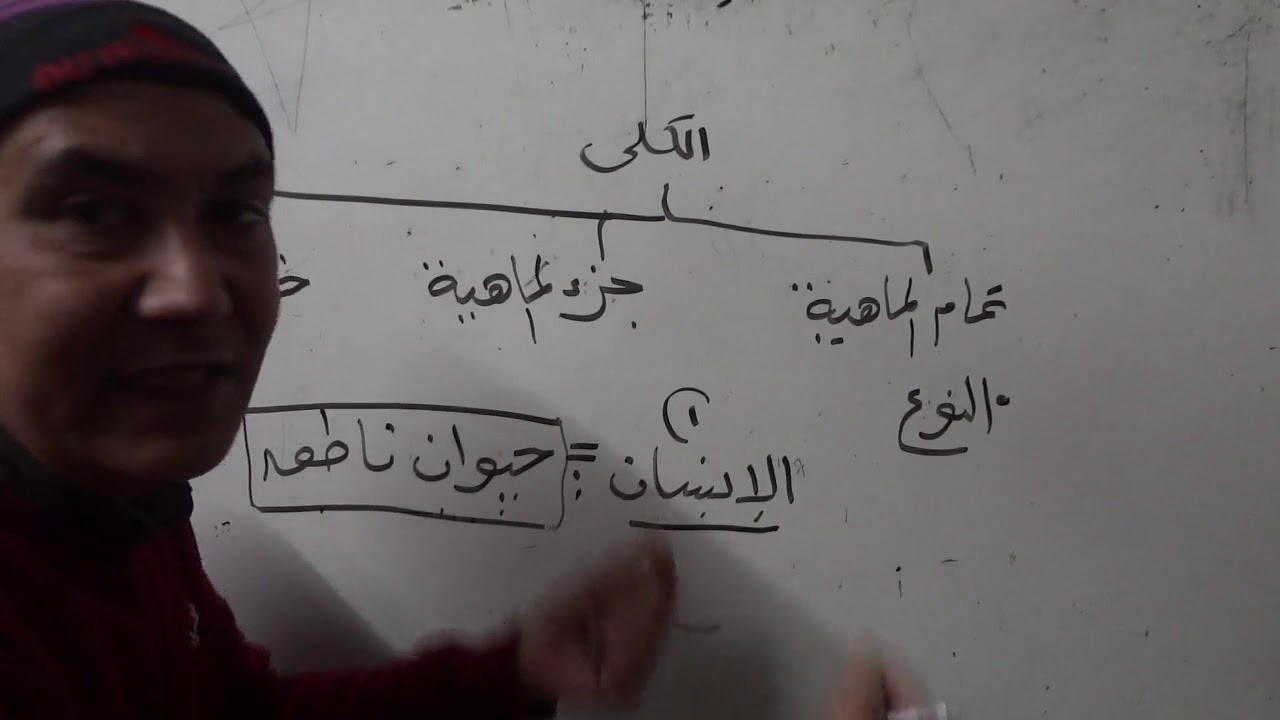 الكلى
تمام الماهية جزء الماهية
النوع
١
الإنسان = حيوان ناطق